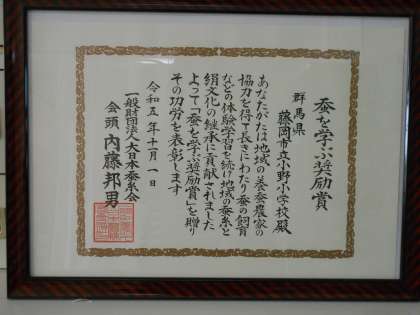 蚕を学ぶ奨励賞
群馬県
藤岡市立小野小学校殿
あなたがたは地域の養蚕農家の
協力を得て長きにわたり蚕の飼育
などの体験学習を続け地域の蚕糸と
絹文化の継承に貢献されました
よって「蚕を学ぶ奨励賞」を贈り
その功労を表彰します
令和五年十一月一日
一般財団法人大日本蚕糸会
会頭 内藤邦男